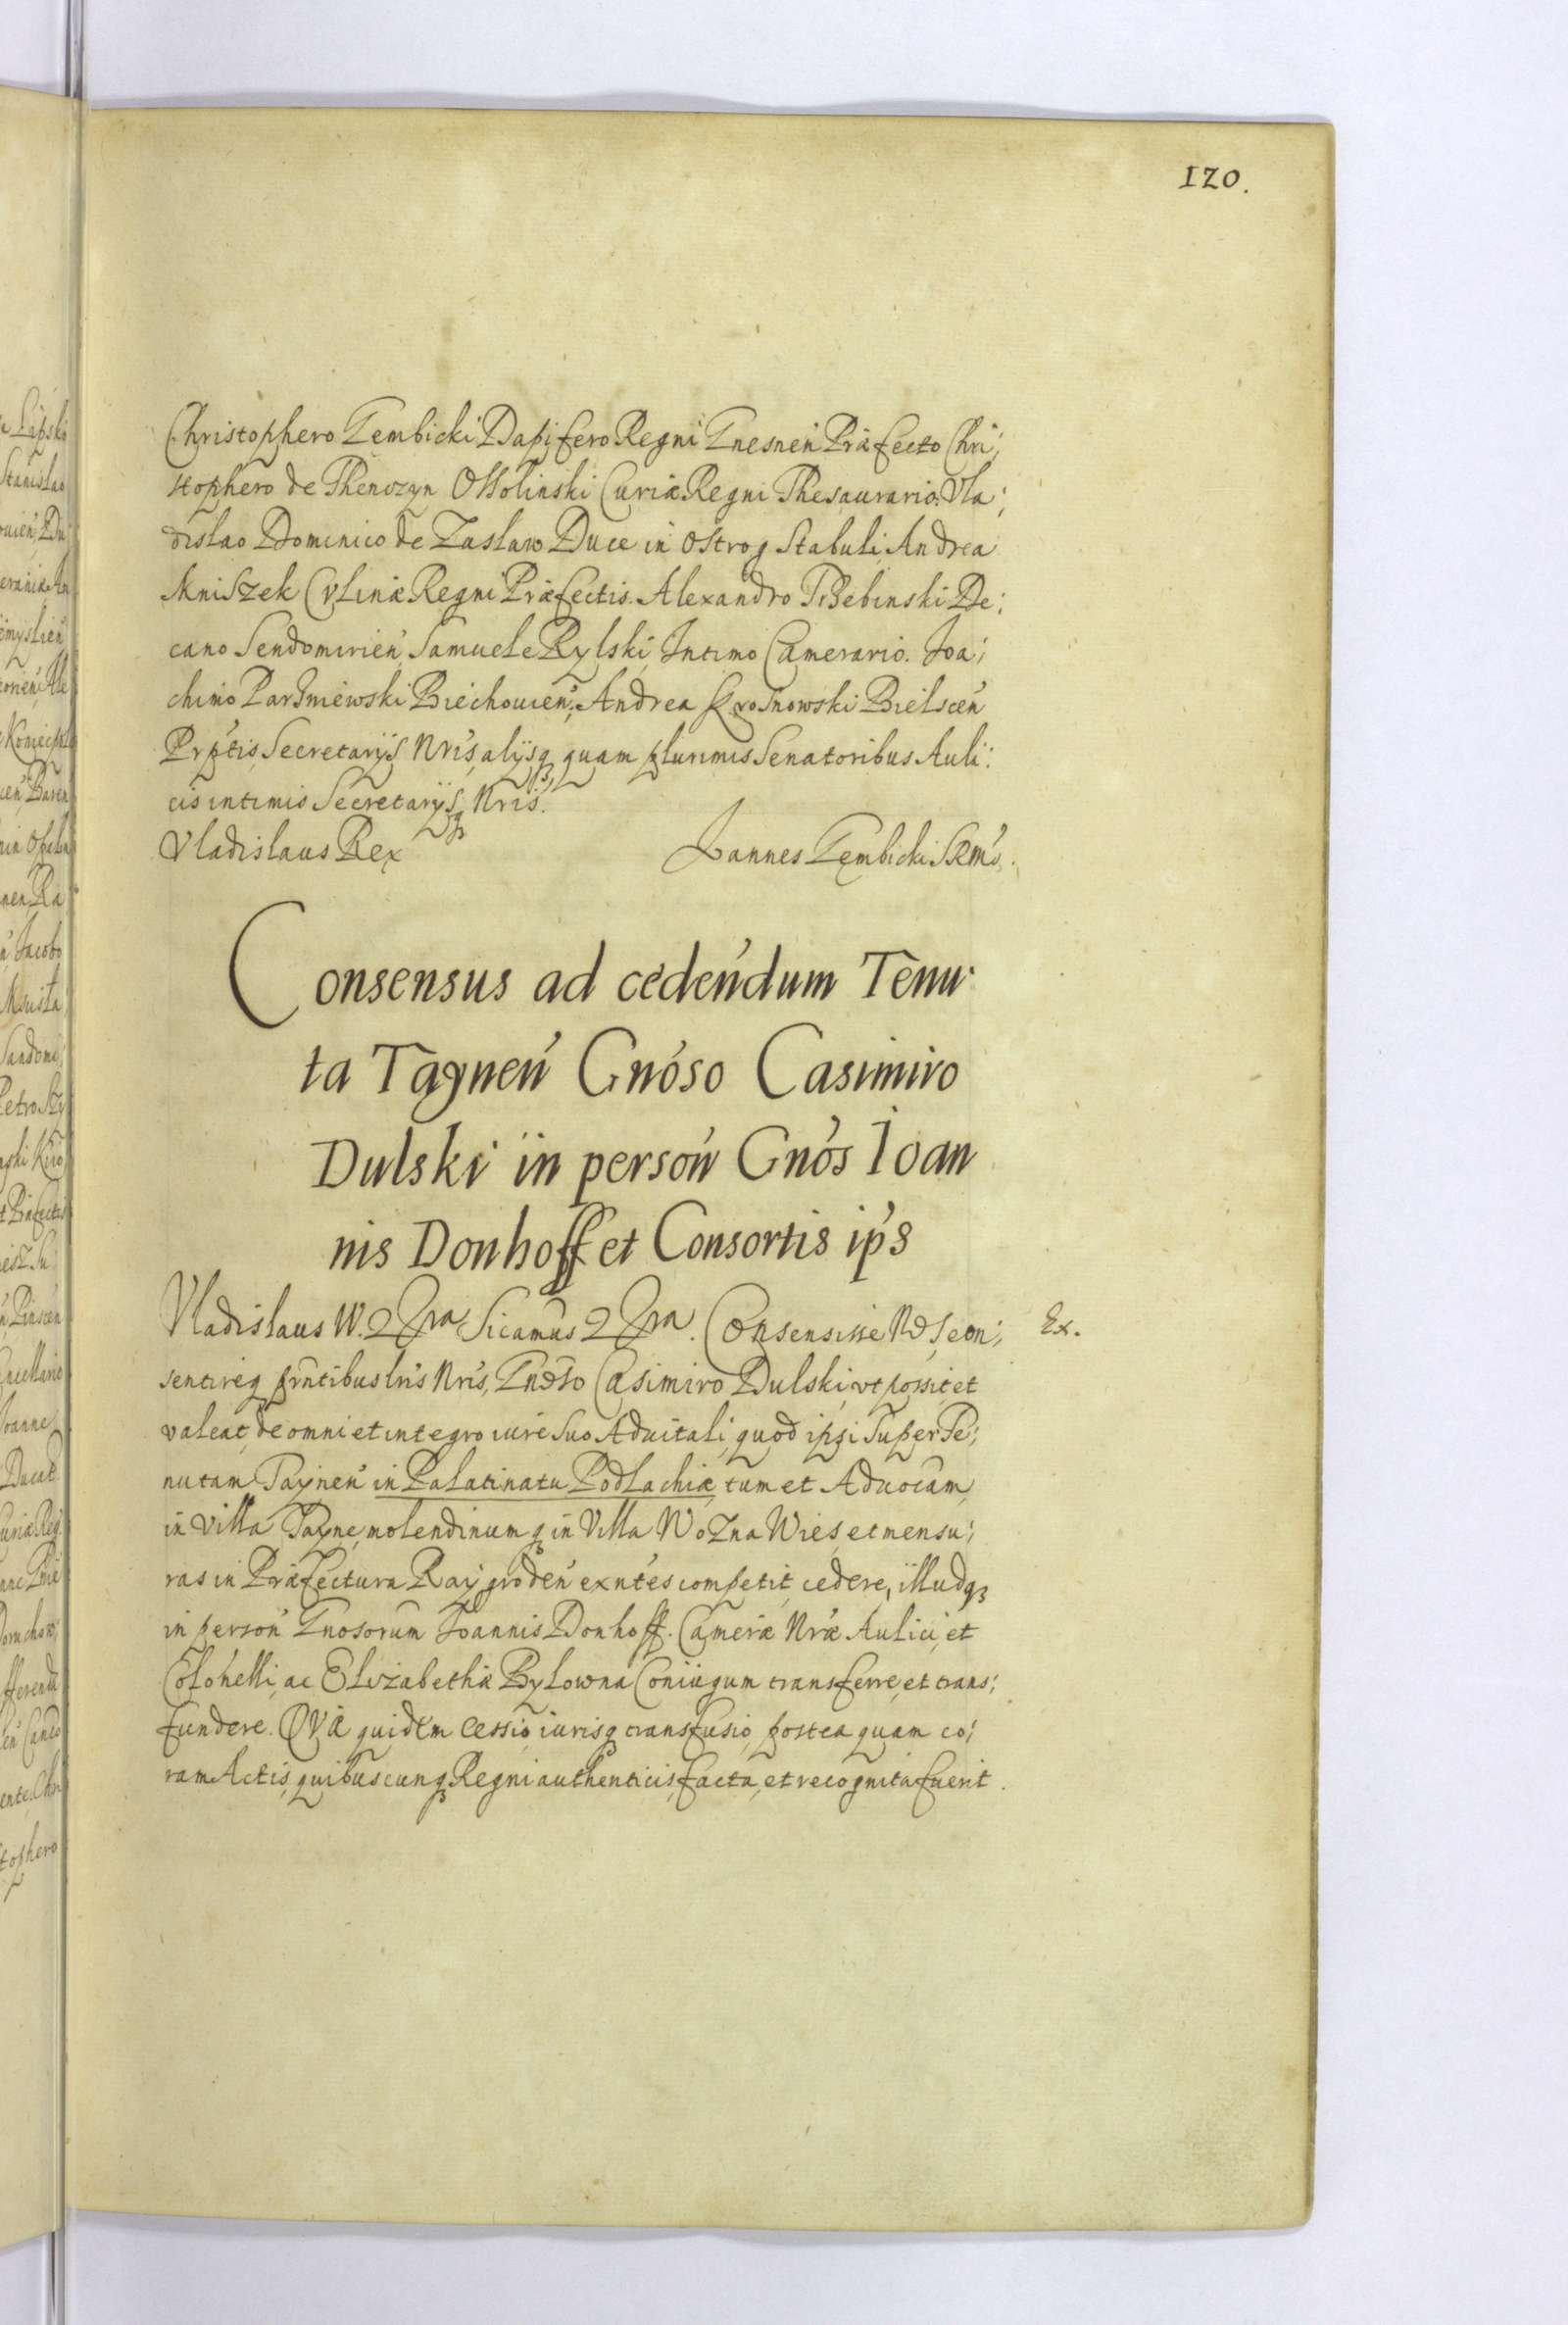 120.
Christophero Gembicki Dapifero Regni Gnesnen Præfecto Chri;
stophero de Thenczyn Ossolinski Curiæ Regni Thesaurario. Vla;
dislao Dominico de Zaslaw Duce in Ostrog Stabuli, Andrea
Mniszek Cvlinæ Regni Præfectis. Alexandro Trzebinski De;
cano Sendomirien, Samuele Rylski, Intimo Camerario. Joa;
chimo Parzniewski Biechouien, Andrea Krosnowski Bielscen
Prptis, Secretarijs Nris, alijsq quam plurimis Senatoribus Auli:
cis intimis Secretarijsq Nris.
Vladislaus Rex Joannes Gembicki SRMs.
Consensus ad cedendum Tenu
ta Taynen Gnoso Casimiro
Dulski in person Gnos Ioan
nis Donhoff et Consortis ips
Vladislaus IV. Sicamus Consensisse Nos, con;
Ex.
sentireq prntibus lris Nris, Gnoso Casimiro Dulski, vt possit et
valeat, de omni et integro iure suo Aduitali, quod ipsi super Te;
nutam Taynen in Palatinatu Podlachiæ, tum et Aduocam,
in Villa Tayne, molendinumq in Villa Wozna Wies, et mensu;
ras in Præfectura Raygroden exntes competit, cedere, illudq3
in person Gnosorum Joannis Donhoff. Cameræ Nræ Aulici, et
Colonelli, ac Elizabethæ Bylowna Coniugum transferre, et trans;
fundere. QVÆ quidem Cessio, iurisq transfusio, postea quam co;
ram Actis, quibuscunq Regni authenticis, facta, et recognita fuerit.